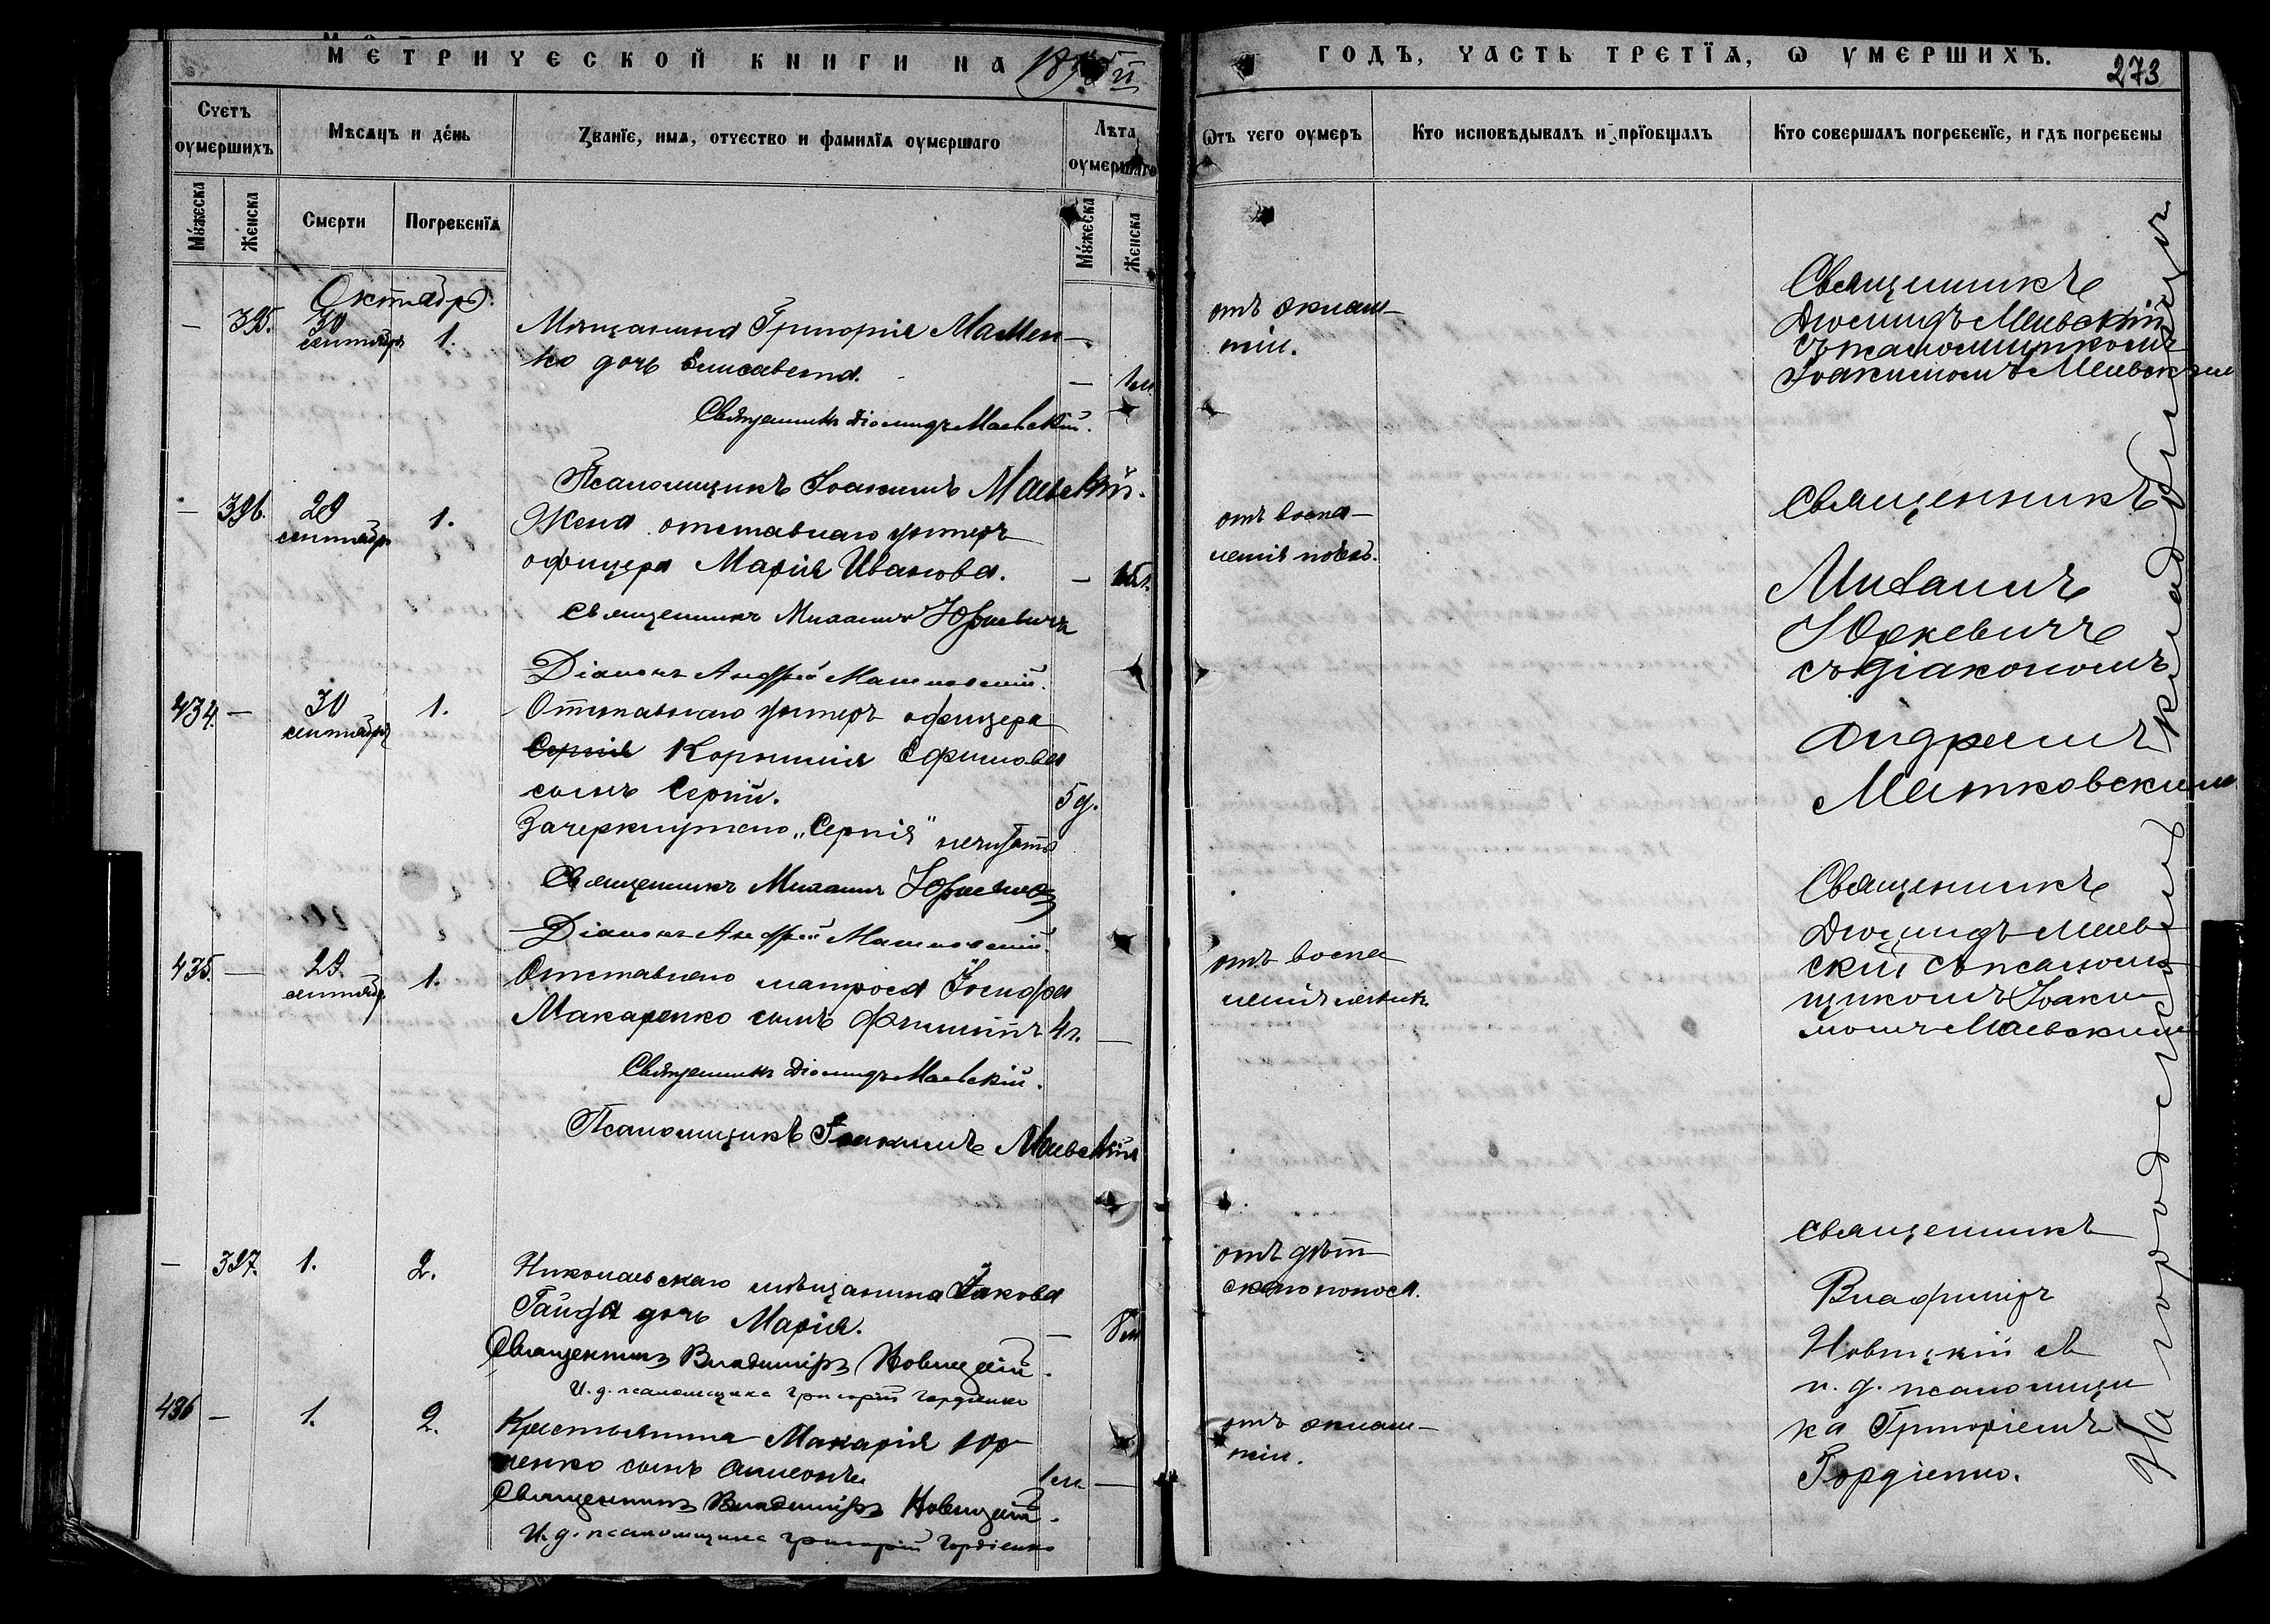 МЕТРИЧЕСКОЙ КНИГИ НА 1895й
ГОДЪ, ЧАСТЬ ТРЕТІѦ, Ѡ УМЕРШИХЪ.
273
Счетъ оумершихъ
Мѣсяцъ и де́нь
Званїе, имѧ, отчество и фамилїѧ оумершаго
Лѣта оумершаго
Ѿтъ чего оумеръ
Кто исповѣдывалъ и прїобщалъ
Кто совершалъ погребенїе, и гдѣ погребены
Мꙋжеска
Женска
Смерти
Погребенїѧ
Мꙋжеска
Женска
Октябрь.
— 395. 30 сентября 1.
Мѣщанина Григорія Мамен-
ко дочь Елисавета. — 1м.
Священникъ Діомидъ Маевскій.
Псаломщикъ Іоакимъ Маевскій.
отъ эклам-
псіи.
Священникъ
Діомидъ Маевскій
съ псаломщикомъ
Іоакимомъ Маевскимъ
— 396. 29 сентября 1.
Жена отставнаго унтеръ
офицера Марія Иванова. —
Священникъ Михаилъ Юркевичъ
Діаконъ Андрей Матковскій.
отъ воспа-
ленія почекъ.
Священникъ
Михаилъ
Юркевичъ
съ діакономъ
Андреемъ
Матковскимъ
434. — 30 сентября 1.
Отставнаго унтеръ офицера
Сергія Корнилія Ефимова
сынъ Сергій. 5 д.
Зачеркнутаго „Сергія" не читать
Священникъ Михаилъ Юркевичъ
Діаконъ Андрей Матковскій.
435. — 29. сентября 1.
Отставнаго матроса Іосифа
Макаренко сынъ Филиппъ 4г. —
Священникъ Діомидъ Маевскій.
Псаломщикъ Іоакимъ Маевскій
отъ воспа
ленія легкихъ
Священникъ
Діомидъ Маев-
скій съ псалом-
щикомъ Іоаки-
момъ Маевскимъ
— 397. 1. 2.
Николаевскаго мѣщанина Іакова
Гайды дочь Марія. — 8м
Священникъ Владиміръ Новицкій.
И. д. псаломщика Григорій Гордіенко
отъ дѣт-
скаго поноса.
Священникъ
Владиміръ
Новицкій съ
и. д. псаломщи
ка Григоріемъ
Гордіенко.
436 — 1. 2.
Крестьянина Макарія Юр
ченко сынъ Симеонъ. 1м —
Священникъ Владиміръ Новицкій.
И. д. псаломщика Григорій Гордіенко
отъ эклам-
псіи.
На городскомъ кладбищѣ